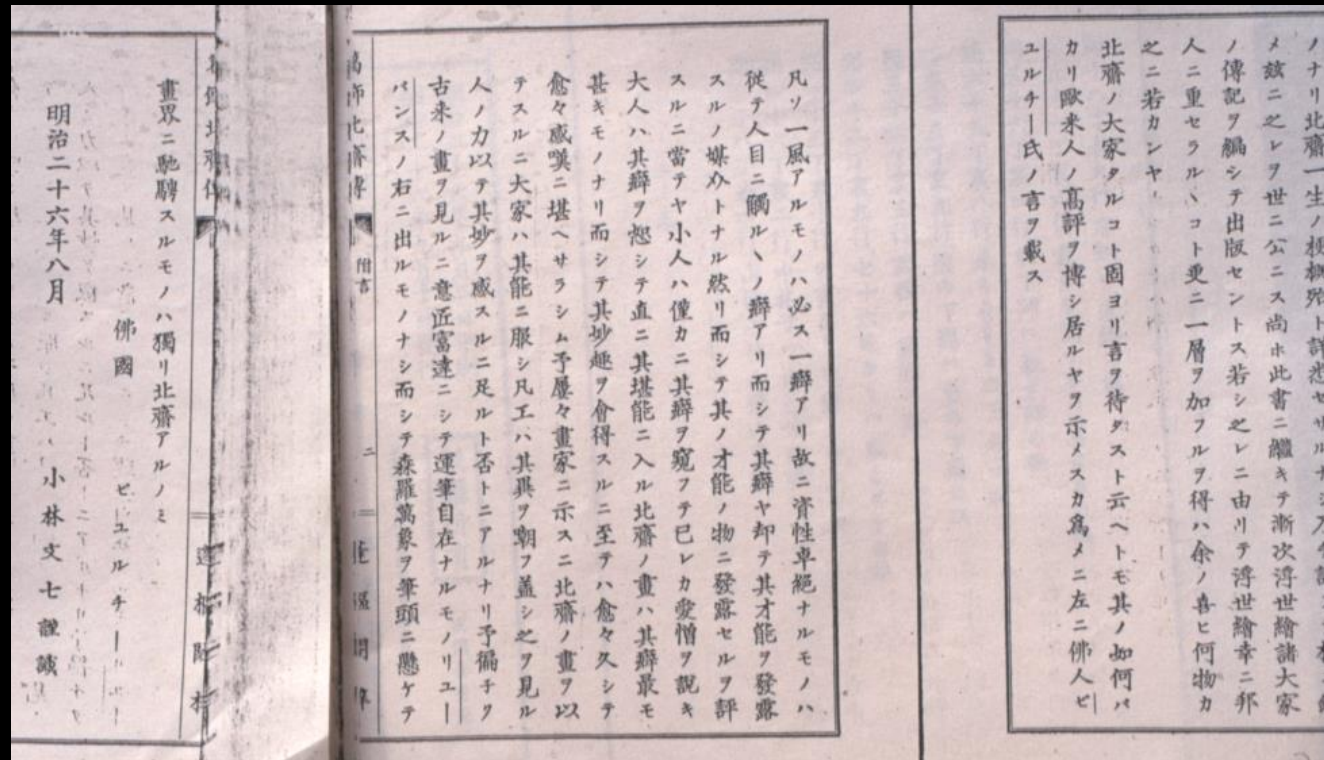 ノナリ北齋一生ノ梗概殆ト詳悉セサルナシ乃
メ玆ニ之レヲ世ニ公ニス尚ホ此書ニ繼キテ漸次浮世繪諸大家
ノ傳記ヲ編シテ出版セントス若シ之レニ由リテ浮世繪幸ニ邦
人ニ重セラルヽコト更ニ一層ヲ加フルヲ得ハ余ノ喜ヒ何物カ
之ニ若カンヤ
北齋ノ大家タルコト固ヨリ言ヲ待タスト云ヘトモ其ノ如何ハ
カリ歐米人ノ髙評ヲ博シ居ルヤヲ示メスカ爲メニ左ニ佛人ビ
ユルチー氏ノ言ヲ載ス
凡ソ一風アルモノハ必ス一癖アリ故ニ資性卓絕ナルモノハ
從テ人目ニ觸ルヽノ癖アリ而シテ其癖ヤ却テ其才能ヲ發露
スルノ媒介トナル然リ而シテ其ノ才能ノ物ニ發露セルヲ評
スルニ當テヤ小人ハ僅カニ其癖ヲ窺フテ已レカ愛憎ヲ說キ
大人ハ其癖ヲ恕シテ直ニ其堪能ニ入ル北齋ノ畫ハ其癖最モ
甚キモノナリ而シテ其妙趣ヲ會得スルニ至テハ愈々久シテ
愈々感嘆ニ堪ヘサラシム予屢々畫家ニ示スニ北齋ノ畫ヲ以
テスルニ大家ハ其能ニ服シ凡工ハ其異ヲ嘲フ蓋シ之ヲ見ル
人ノ力以テ其妙ヲ感スルニ足ルト否トニアルナリ予徧子ク
古来ノ畫ヲ見ルニ意匠富達ニシテ運筆自在ナルモノリユー
バンスノ右ニ出ルモノナシ而シテ森羅萬象ヲ筆頭ニ懸ケテ
葛飾北齋傳 附言 二
畫界ニ馳騁スルモノハ獨リ北齋アルノミ
佛國 ビユルチー
明治二十六年八月 小林文七謹識